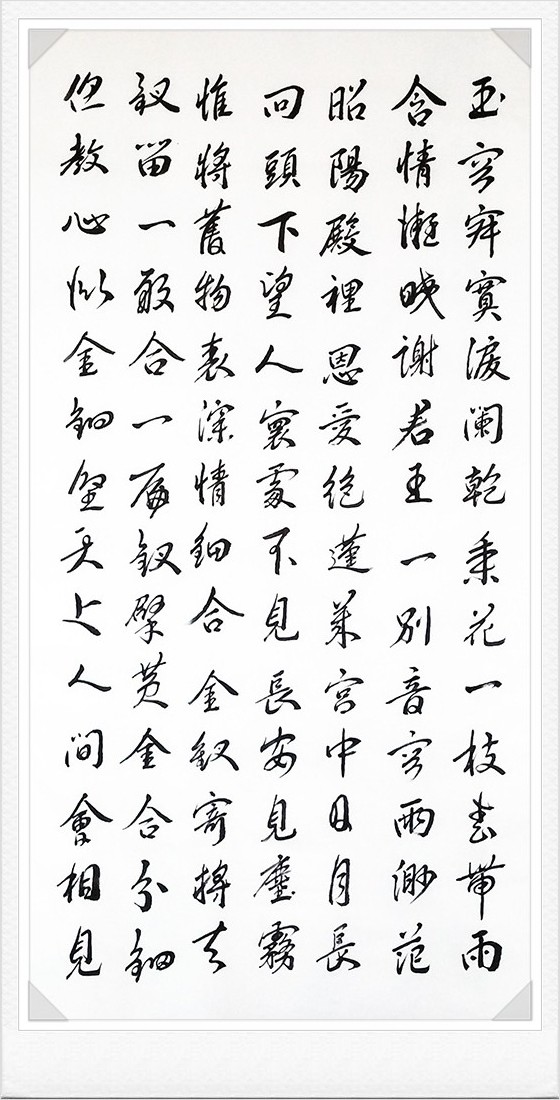 玉容寂寞淚阑乾梨花一枝春帶雨
含情凝睇謝君王一别音容兩渺茫
昭陽殿裡恩愛絕蓬萊宮中日月長
回頭下望人寰處不見長安見塵霧
惟將舊物表深情鈿合金釵寄將去
釵留一股合一扇釵擘黄金合分鈿
但教心似金鈿堅天上人間會相見